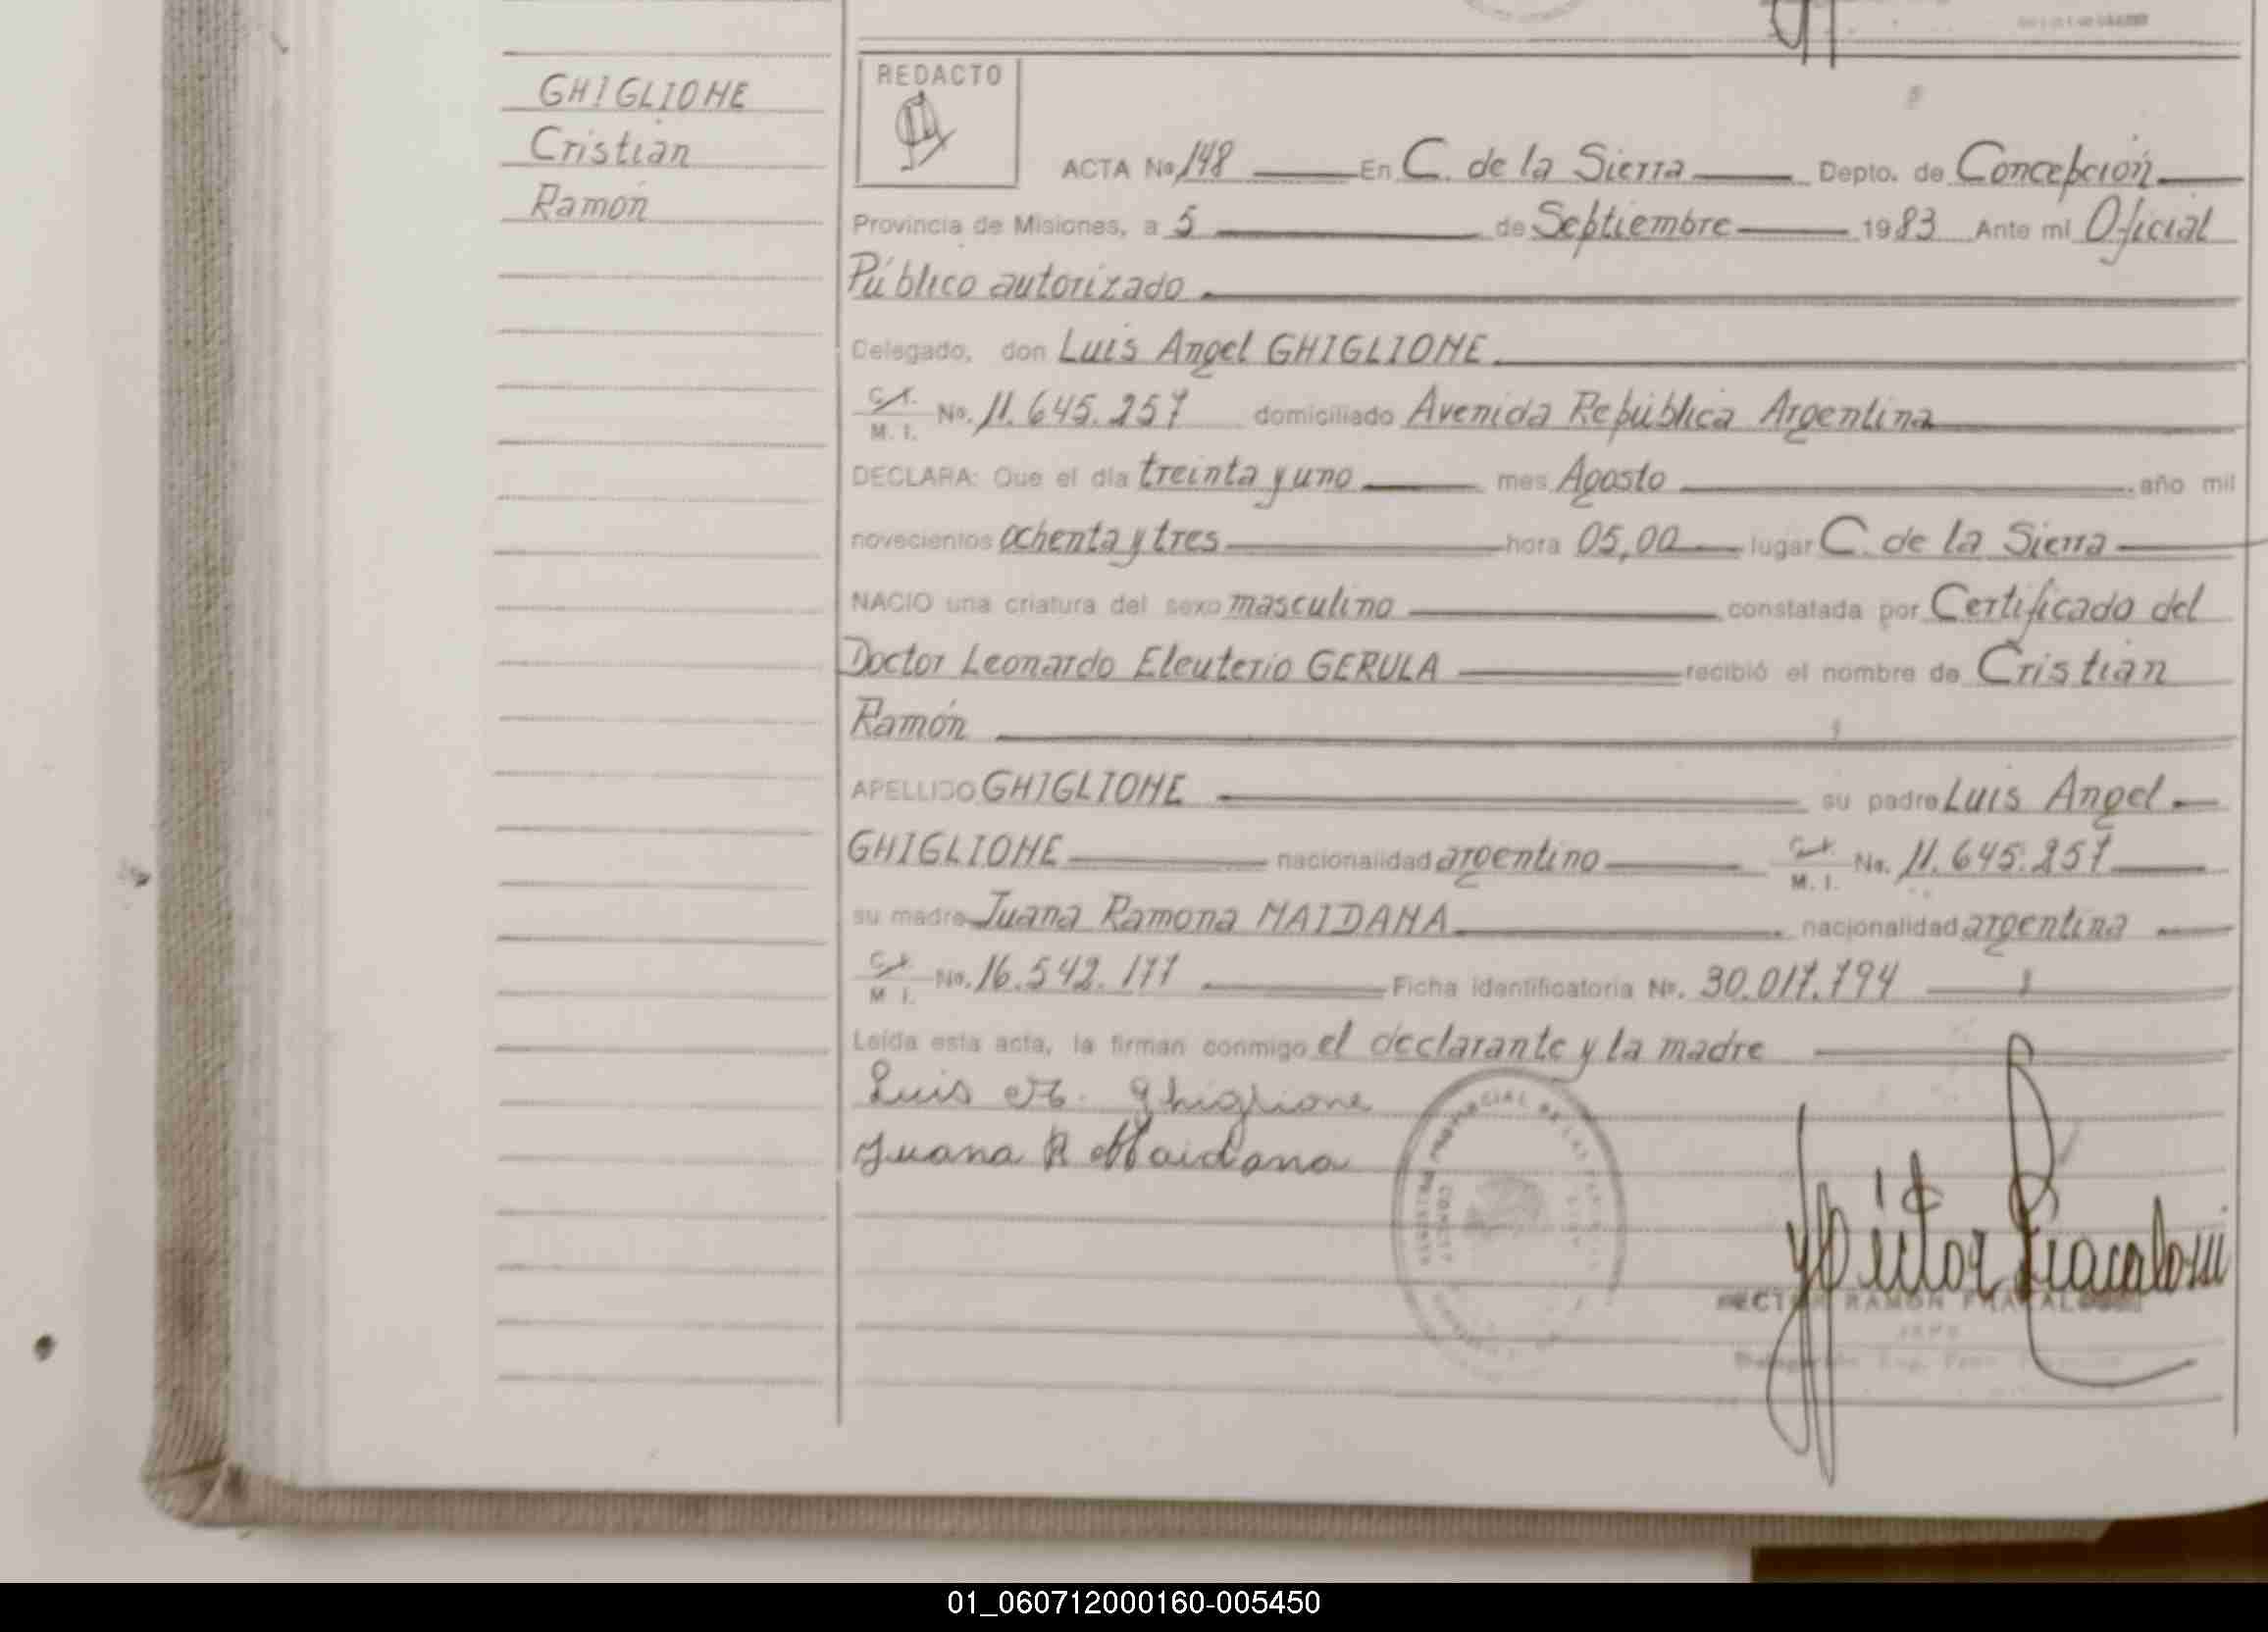 GHIGLIONE
Cristian
Ramón
REDACTO
ACTA No 148 En C. de la Sierra Depto. de Concepción
Provincia de Misiones, a 5 de Septiembre 1983 Ante mi Oficial
Público autorizado
Delegado, don Luis Angel GHIGLIONE
C.I.
M. I. No. 11.645.257 domiciliado Avenida República Argentina
DECLARA: Que el día treinta y uno mes Agosto año mil
novecientos ochenta y tres hora 05,00 lugar C. de la Sierra
NACIO una criatura del sexo masculino constatada por Certificado del
Doctor Leonardo Eleuterio GERULA recibió el nombre de Cristian
Ramón
APELLIDO GHIGLIONE su padre Luis Angel
GHIGLIONE nacionalidad argentino C.I.
M. I. No. 11.645.257
su madre Juana Ramona MAIDANA nacionalidad argentina
C.I.
M I. No. 16.542.177 Ficha identificatoria Nº. 30.017.794
Leída esta acta, la firman conmigo el declarante y la madre
Luis A. Ghiglione
Juana R Maidana
PROVINCIAL DE LAS
HECTOR RAMON FRACALOSSI
JEFE
01_060712000160-005450